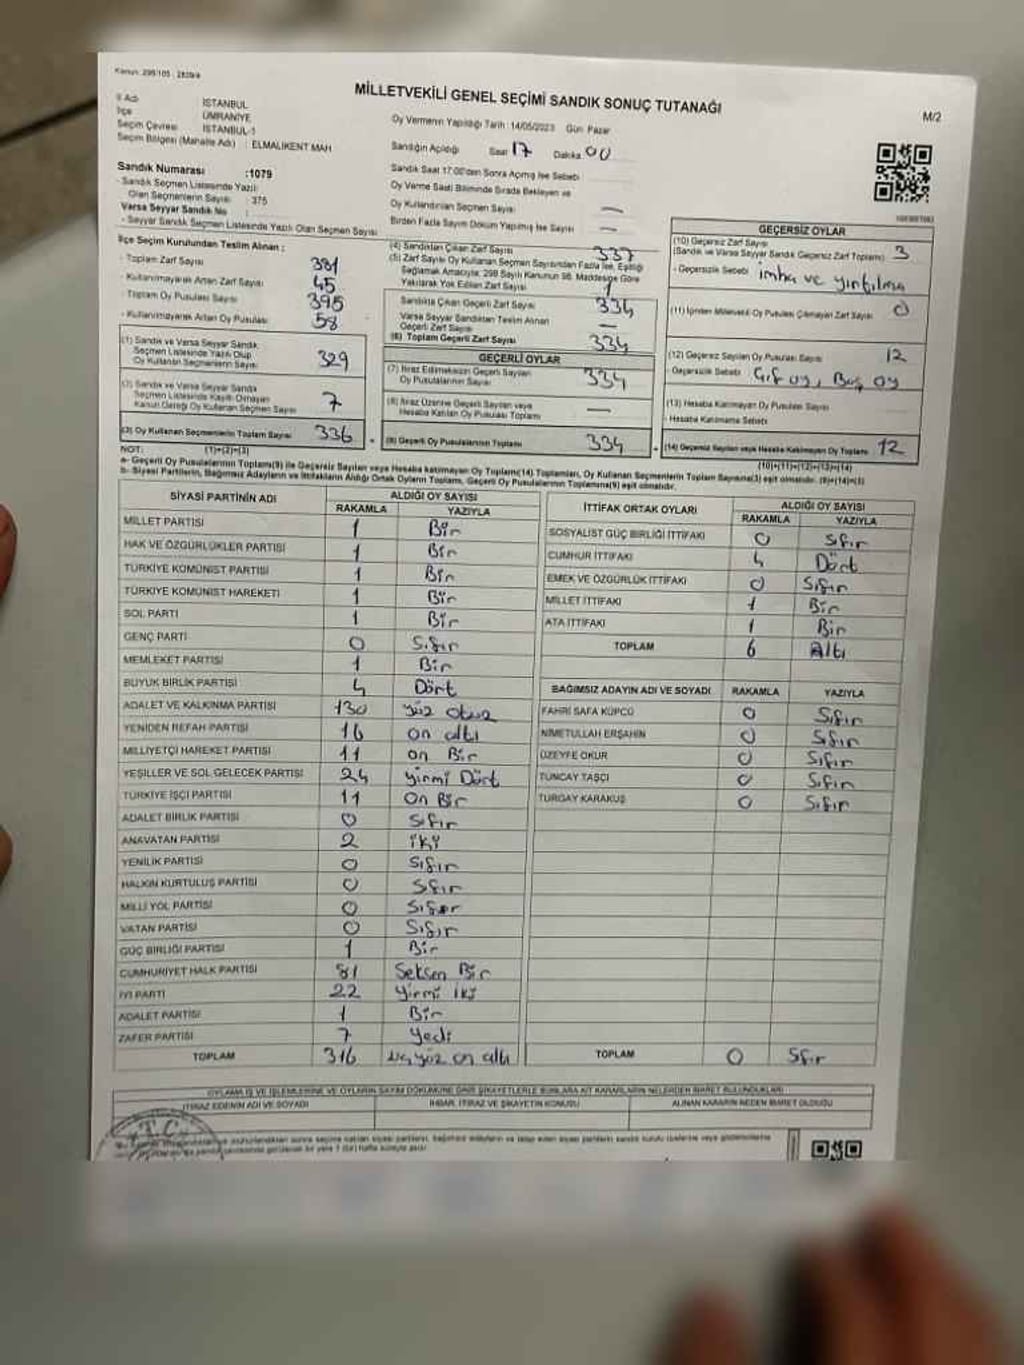 Kanun: 298/105 , 2839/4
MİLLETVEKİLİ GENEL SEÇİMİ SANDIK SONUÇ TUTANAĞI
M/2
İl Adı : İSTANBUL
İlçe : ÜMRANİYE
Seçim Çevresi : İSTANBUL-1
Seçim Bölgesi (Mahalle Adı) : ELMALIKENT MAH
Sandık Numarası :1079
- Sandık Seçmen Listesinde Yazılı
Olan Seçmenlerin Sayısı : 375
Varsa Seyyar Sandık No :
- Seyyar Sandık Seçmen Listesinde Yazılı Olan Seçmen Sayısı
Oy Vermenin Yapıldığı Tarih :14/05/2023 Gün: Pazar
Sandığın Açıldığı Saat 17 Dakika 00
Sandık Saat 17:00'den Sonra Açılmış İse Sebebi
Oy Verme Saati Bitiminde Sırada Bekleyen ve
Oy Kullandırılan Seçmen Sayısı —
Birden Fazla Sayım Döküm Yapılmış İse Sayısı —
İlçe Seçim Kurulundan Teslim Alınan :
- Toplam Zarf Sayısı 381
- Kullanılmayarak Artan Zarf Sayısı 45
- Toplam Oy Pusulası Sayısı 395
- Kullanılmayarak Artan Oy Pusulası 58
(1) Sandık ve Varsa Seyyar Sandık
Seçmen Listesinde Yazılı Olup
Oy Kullanan Seçmenlerin Sayısı 329
(2) Sandık ve Varsa Seyyar Sandık
Seçmen Listesinde Kayıtlı Olmayan
Kanun Gereği Oy Kullanan Seçmen Sayısı 7
(3) Oy Kullanan Seçmenlerin Toplam Sayısı 336
(1)+(2)=(3)
(4) Sandıktan Çıkan Zarf Sayısı 337
(5) Zarf Sayısı Oy Kullanan Seçmen Sayısından Fazla İse, Eşitliği
Sağlamak Amacıyla; 298 Sayılı Kanunun 98. Maddesine Göre
Yakılarak Yok Edilen Zarf Sayısı 1
Sandıkta Çıkan Geçerli Zarf Sayısı 334
Varsa Seyyar Sandıktan Teslim Alınan
Geçerli Zarf Sayısı —
(6) Toplam Geçerli Zarf Sayısı 334
GEÇERLİ OYLAR
(7) İtiraz Edilmeksizin Geçerli Sayılan
Oy Pusulalarının Sayısı 334
(8) İtiraz Üzerine Geçerli Sayılan veya
Hesaba Katılan Oy Pusulası Toplamı —
(9) Geçerli Oy Pusulalarının Toplamı 334
GEÇERSİZ OYLAR
(10) Geçersiz Zarf Sayısı
(Sandık ve Varsa Seyyar Sandık Geçersiz Zarf Toplamı) 3
- Geçersizlik Sebebi imha ve yırtılma
(11) İçinden Milletvekili Oy Pusulası Çıkmayan Zarf Sayısı 0
(12) Geçersiz Sayılan Oy Pusulası Sayısı 12
- Geçersizlik Sebebi Çift oy, Boş oy
(13) Hesaba Katılmayan Oy Pusulası Sayısı
- Hesaba Katılmama Sebebi
(14) Geçersiz Sayılan veya Hesaba Katılmayan Oy Toplamı 12
(10)+(11)+(12)+(13)=(14)
NOT:
a- Geçerli Oy Pusulalarının Toplamı(9) ile Geçersiz Sayılan veya Hesaba katılmayan Oy Toplamı(14) Toplamları, Oy Kullanan Seçmenlerin Toplam Sayısına(3) eşit olmalıdır. (9)+(14)=(3)
b- Siyasi Partilerin, Bağımsız Adayların ve İttifakların Aldığı Ortak Oyların Toplamı, Geçerli Oy Pusulalarının Toplamına(9) eşit olmalıdır.
SİYASİ PARTİNİN ADI ALDIĞI OY SAYISI
RAKAMLA YAZIYLA
MİLLET PARTİSİ 1 Bir
HAK VE ÖZGÜRLÜKLER PARTİSİ 1 Bir
TÜRKİYE KOMÜNİST PARTİSİ 1 Bir
TÜRKİYE KOMÜNİST HAREKETİ 1 Bir
SOL PARTİ 1 Bir
GENÇ PARTİ 0 Sıfır
MEMLEKET PARTİSİ 1 Bir
BÜYÜK BİRLİK PARTİSİ 4 Dört
ADALET VE KALKINMA PARTİSİ 130 yüz otuz
YENİDEN REFAH PARTİSİ 16 on altı
MİLLİYETÇİ HAREKET PARTİSİ 11 on Bir
YEŞİLLER VE SOL GELECEK PARTİSİ 24 yirmi Dört
TÜRKİYE İŞÇİ PARTİSİ 11 On Bir
ADALET BİRLİK PARTİSİ 0 Sıfır
ANAVATAN PARTİSİ 2 iki
YENİLİK PARTİSİ 0 Sıfır
HALKIN KURTULUŞ PARTİSİ 0 Sfır
MİLLİ YOL PARTİSİ 0 Sıfır
VATAN PARTİSİ 0 Sıfır
GÜÇ BİRLİĞİ PARTİSİ 1 Bir
CUMHURİYET HALK PARTİSİ 81 Seksen Bir
İYİ PARTİ 22 yirmi iki
ADALET PARTİSİ 1 Bir
ZAFER PARTİSİ 7 yedi
TOPLAM 316 üç yüz on altı
İTTİFAK ORTAK OYLARI ALDIĞI OY SAYISI
RAKAMLA YAZIYLA
SOSYALİST GÜÇ BİRLİĞİ İTTİFAKI 0 Sıfır
CUMHUR İTTİFAKI 4 Dört
EMEK VE ÖZGÜRLÜK İTTİFAKI 0 Sıfır
MİLLET İTTİFAKI 1 Bir
ATA İTTİFAKI 1 Bir
TOPLAM 6 Altı
BAĞIMSIZ ADAYIN ADI VE SOYADI RAKAMLA YAZIYLA
FAHRİ SAFA KÜPCÜ 0 Sıfır
NİMETULLAH ERŞAHİN 0 Sıfır
ÜZEYFE OKUR 0 Sıfır
TUNCAY TAŞÇI 0 Sıfır
TURGAY KARAKUŞ 0 Sıfır
TOPLAM 0 Sfır
OYLAMA İŞ VE İŞLEMLERİNE VE OYLARIN SAYIM DÖKÜMÜNE DAİR ŞİKAYETLERLE BUNLARA AİT KARARLARIN NELERDEN İBARET BULUNDUKLARI
İTİRAZ EDENİN ADI VE SOYADI İHBAR, İTİRAZ VE ŞİKAYETİN KONUSU ALINAN KARARIN NEDEN İBARET OLDUĞU
T.C.